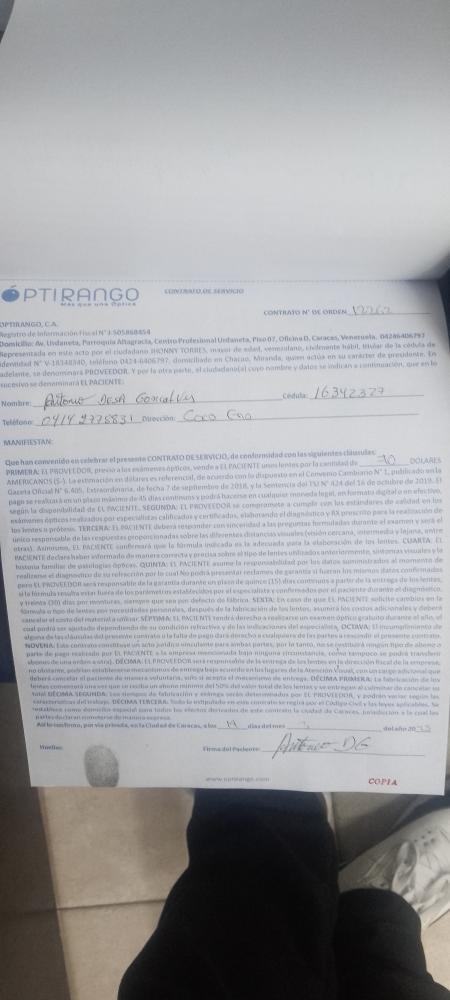 ÓPTIRANGO
Más que una Óptica
CONTRATO DE SERVICIO
CONTRATO N° DE ORDEN 12262
OPTIRANGO, C.A.
Registro de Información Fiscal N° J-505868454
Domicilio: Av. Urdaneta, Parroquia Altagracia, Centro Profesional Urdaneta, Piso 07, Oficina D, Caracas, Venezuela. 04246406797
Representada en este acto por el ciudadano JHONNY TORRES, mayor de edad, venezolano, civilmente hábil, titular de la cédula de
identidad N° V-18348340, teléfono 0424-6406797, domiciliado en Chacao, Miranda, quien actúa en su carácter de presidente. En
adelante, se denominará PROVEEDOR. Y por la otra parte, el ciudadano(a) cuyo nombre y datos se indican a continuación, que en lo
sucesivo se denominará EL PACIENTE:
Nombre: Antonio Desa Goncalves Cédula: 16342327
Teléfono: 0414 2778831 Dirección: Coco
MANIFIESTAN:
Que han convenido en celebrar el presente CONTRATO DE SERVICIO, de conformidad con las siguientes cláusulas:
PRIMERA: EL PROVEEDOR, previo a los exámenes ópticos, vende a EL PACIENTE unos lentes por la cantidad de 70 DÓLARES
AMERICANOS ($-). La estimación en dólares es referencial, de acuerdo con lo dispuesto en el Convenio Cambiario N° 1, publicado en la
Gaceta Oficial N° 6.405, Extraordinaria, de fecha 7 de septiembre de 2018, y la Sentencia del TSJ N° 424 del 16 de octubre de 2019. El
pago se realizará en un plazo máximo de 45 días continuos y podrá hacerse en cualquier moneda legal, en formato digital o en efectivo,
según la disponibilidad de EL PACIENTE. SEGUNDA: EL PROVEEDOR se compromete a cumplir con los estándares de calidad en los
exámenes ópticos realizados por especialistas calificados y certificados, elaborando el diagnóstico y RX prescrito para la realización de
los lentes o prótesis. TERCERA: EL PACIENTE deberá responder con sinceridad a las preguntas formuladas durante el examen y será el
único responsable de las respuestas proporcionadas sobre las diferentes distancias visuales (visión cercana, intermedia y lejana, entre
otras). Asimismo, EL PACIENTE confirmará que la fórmula indicada es la adecuada para la elaboración de los lentes. CUARTA: EL
PACIENTE declara haber informado de manera correcta y precisa sobre el tipo de lentes utilizados anteriormente, síntomas visuales y la
historia familiar de patologías ópticas. QUINTA: EL PACIENTE asume la responsabilidad por los datos suministrados al momento de
realizarse el diagnóstico de su refracción por lo cual No podrá presentar reclamos de garantía si fueran los mismos datos confirmados
pero EL PROVEEDOR será responsable de la garantía durante un plazo de quince (15) días continuos a partir de la entrega de los lentes,
si la fórmula resulta estar fuera de los parámetros establecidos por el especialista y confirmados por el paciente durante el diagnóstico,
y treinta (30) días por monturas, siempre que sea por defecto de fábrica. SEXTA: En caso de que EL PACIENTE solicite cambios en la
fórmula o tipo de lentes por necesidades personales, después de la fabricación de los lentes, asumirá los costos adicionales y deberá
cancelar el costo del material a utilizar. SÉPTIMA: EL PACIENTE tendrá derecho a realizarse un examen óptico gratuito durante el año, el
cual podrá ser ajustado dependiendo de su condición refractiva y de las indicaciones del especialista. OCTAVA: El incumplimiento de
alguna de las cláusulas del presente contrato o la falta de pago dará derecho a cualquiera de las partes a rescindir el presente contrato.
NOVENA: Este contrato constituye un acto jurídico vinculante para ambas partes; por lo tanto, no se restituirá ningún tipo de abono o
parte de pago realizado por EL PACIENTE a la empresa mencionada bajo ninguna circunstancia, como tampoco se podrá transferir
abonos de una orden a otra). DÉCIMA: EL PROVEEDOR será responsable de la entrega de los lentes en la dirección fiscal de la empresa;
no obstante, podrían establecerse mecanismos de entrega bajo acuerdo en los lugares de la Atención Visual, con un cargo adicional que
deberá cancelar el paciente de manera voluntaria, solo si acepta el mecanismo de entrega. DÉCIMA PRIMERA: La fabricación de los
lentes comenzará una vez que se reciba un abono mínimo del 50% del valor total de los lentes y se entregan al culminar de cancelar su
total. DÉCIMA SEGUNDA: Los tiempos de fabricación y entrega serán determinados por EL PROVEEDOR, y podrán variar según las
características del trabajo. DÉCIMA TERCERA: Todo lo estipulado en este contrato se regirá por el Código Civil y las leyes aplicables. Se
establece como domicilio especial para todos los efectos derivados de este contrato la ciudad de Caracas, jurisdicción a la cual las
partes declaran someterse de manera expresa.
Así lo confirmo, por vía privada, en la Ciudad de Caracas, a los 19 días del mes del año 20
Huellas: Firma del Paciente: Antonio DG
www.optirango.com
COPIA